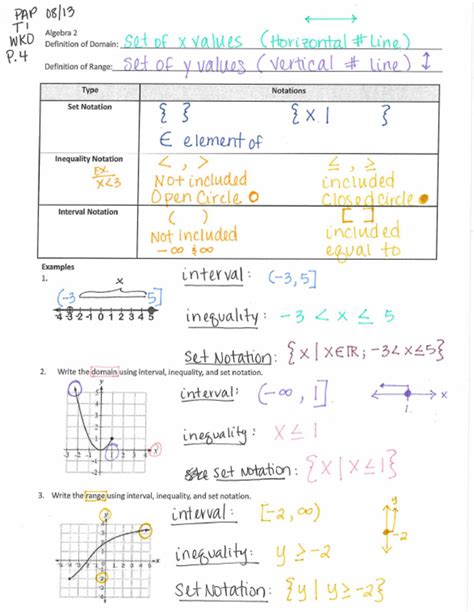 PAP 08/13
T1
WKO
P.4
Algebra 2
Definition of Domain: Set of x values (Horizontal # Line)
Definition of Range: Set of y values (Vertical # Line)
Type Notations
Set Notation { } {x | }
∈ element of
Inequality Notation < , > ≤ , ≥
Ex Not included included
x<3 Open Circle Closed Circle
Interval Notation ( ) [ ]
Not included included
-∞ ∞ equal to
Examples
1. interval: (-3,5]
x
(-3 5]
-4 -3 -2 -1 0 1 2 3 4 5
inequality: -3 < x ≤ 5
Set Notation: {x | x∈ℝ; -3<x≤5}
2. Write the domain using interval, inequality, and set notation.
interval: (-∞, 1]
inequality: x ≤ 1
Set Notation: {x | x≤1}
3. Write the range using interval, inequality, and set notation.
interval: [-2, ∞)
inequality: y ≥ -2
Set Notation: {y | y ≥ -2}